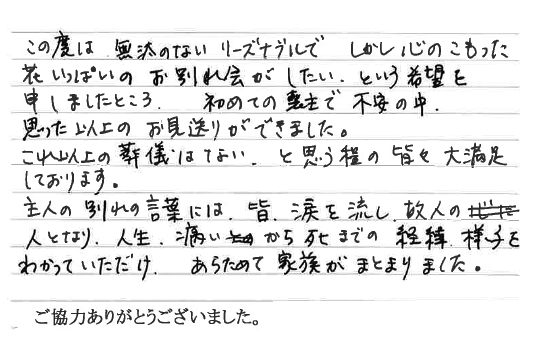 この度は 無汰のない リーズナブルで しかし心のこもった
花いっぱいの お別れ会がしたい、という希望を
申しましたところ、 初めての喪主で 不安の中、
思った以上の お見送りができました。
これ以上の葬儀はない、と思う程の 皆々大満足
しております。
主人の別れの言葉には、皆、涙を流し、故人の
人となり、人生、病い から 死までの 経緯、様子を
わかっていただけ、 あらためて 家族が まとまりました。
ご協力ありがとうございました。